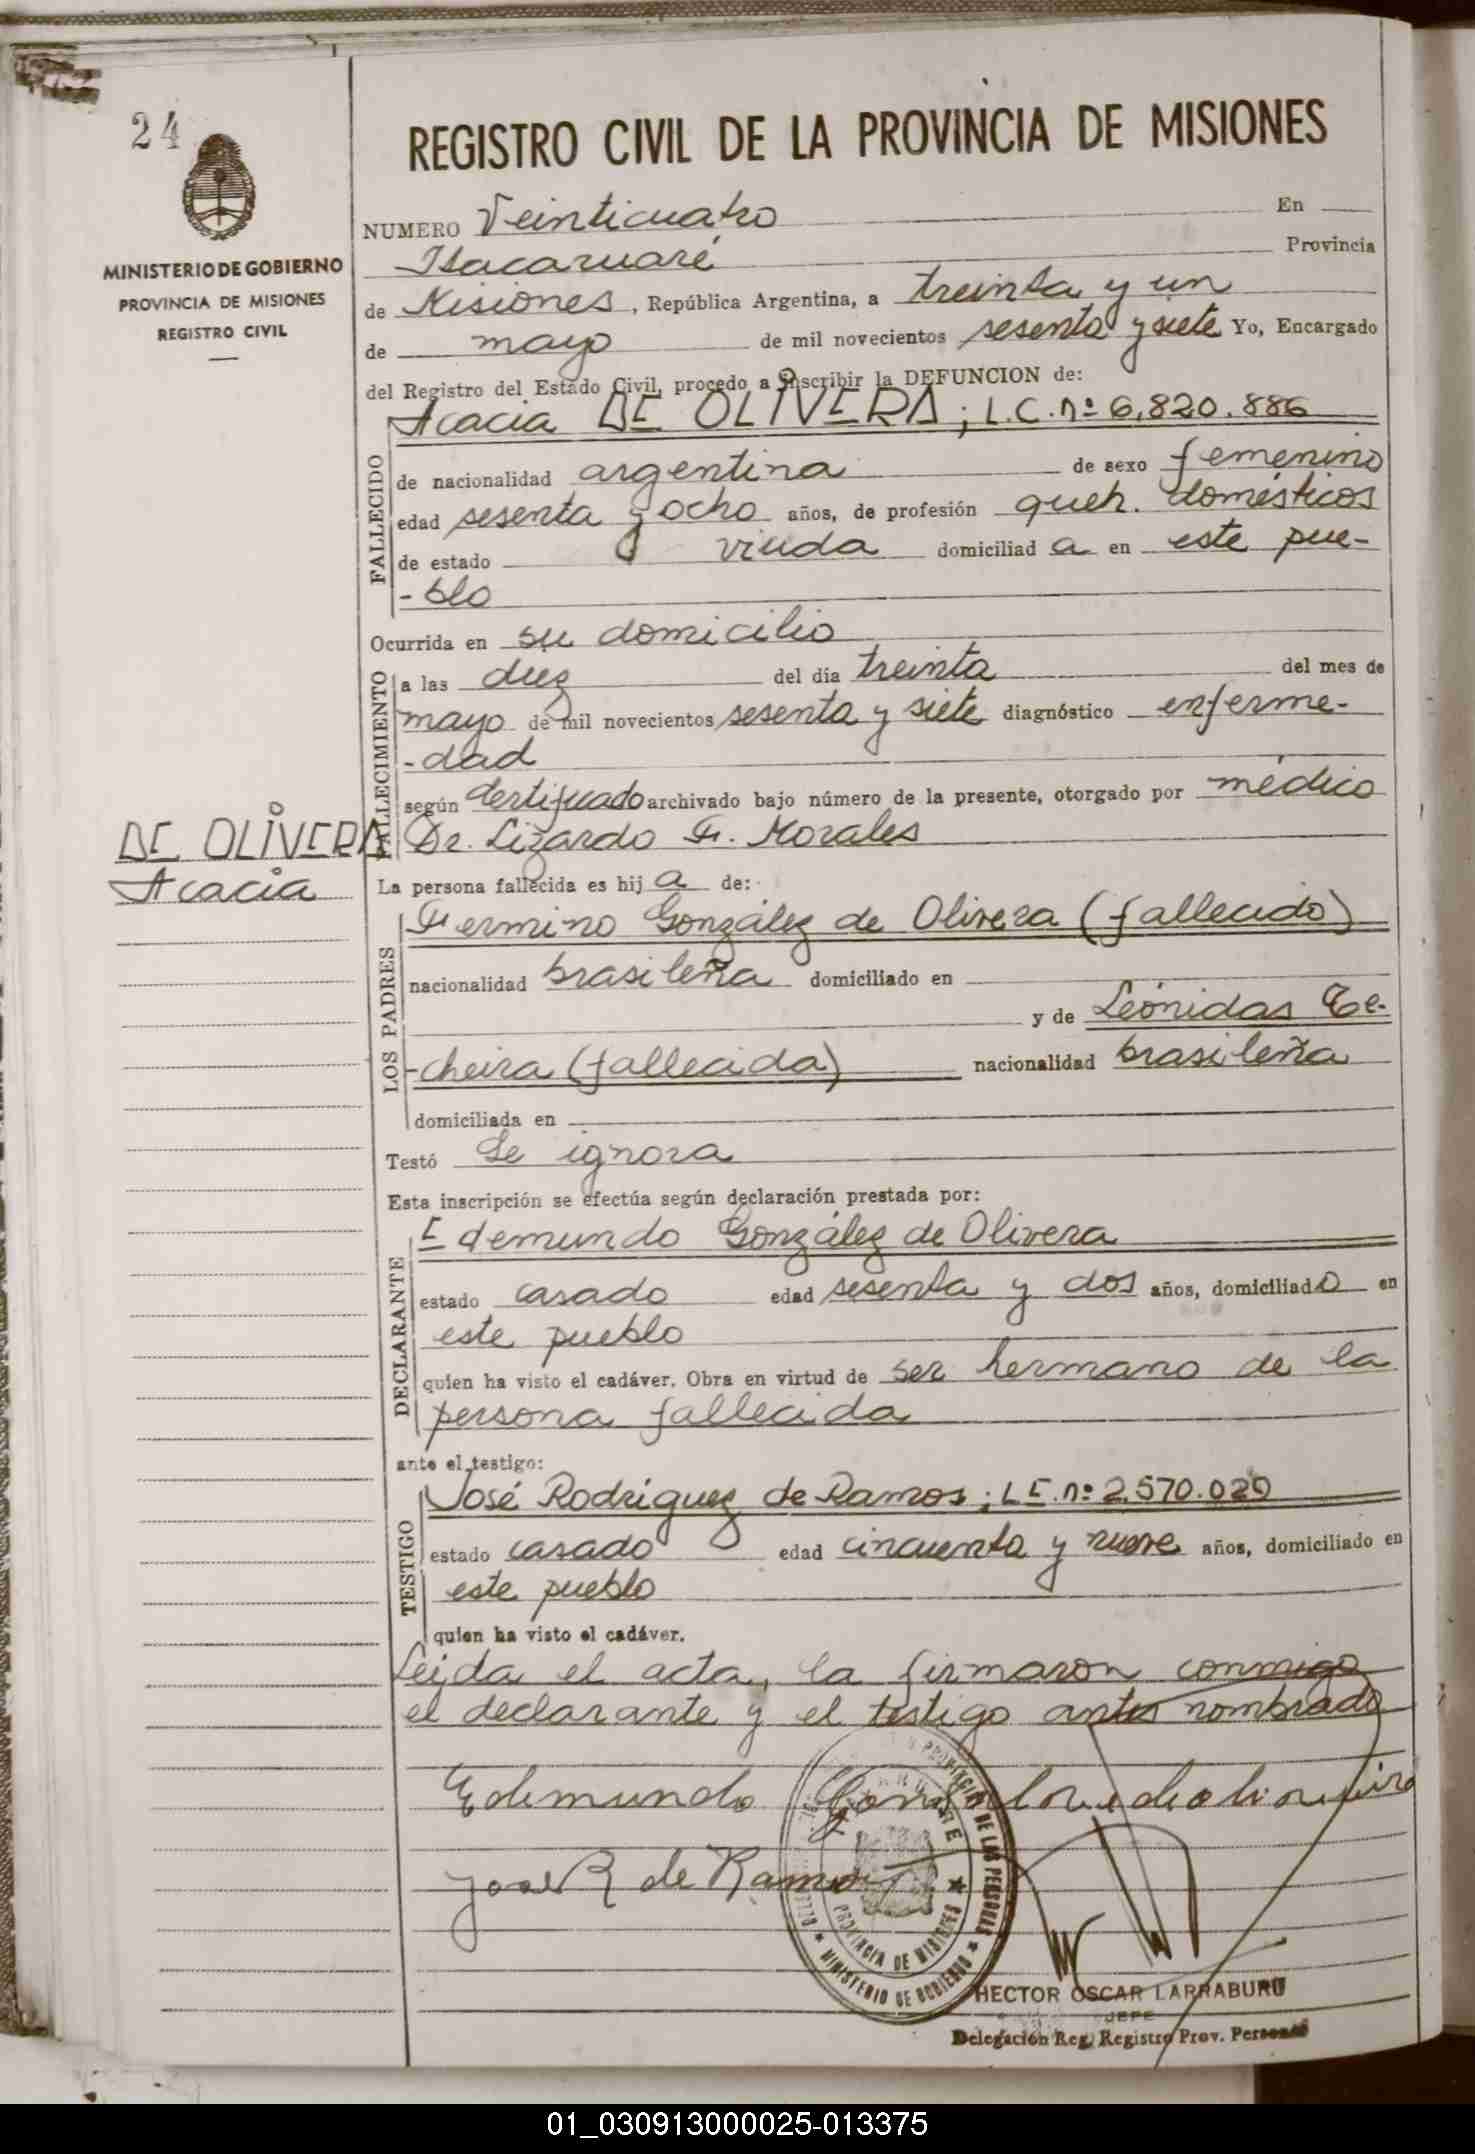 24
MINISTERIO DE GOBIERNO
PROVINCIA DE MISIONES
REGISTRO CIVIL
REGISTRO CIVIL DE LA PROVINCIA DE MISIONES
NUMERO Veinticuatro En
Itacaruaré Provincia
de Misiones, República Argentina, a treinta y un
de mayo de mil novecientos sesenta y siete Yo, Encargado
del Registro del Estado Civil, procedo a inscribir la DEFUNCION de:
Acacia DE OLIVERA; L.C. nº 6.820.886
FALLECIDO
de nacionalidad argentina de sexo femenino
edad sesenta y ocho años, de profesión queh. domésticos
de estado viuda domiciliad a en este pue-
-blo
Ocurrida en su domicilio
FALLECIMIENTO
a las diez del día treinta del mes de
mayo de mil novecientos sesenta y siete diagnóstico enferme-
-dad
según certificado archivado bajo número de la presente, otorgado por médico
Dr. Lizardo F. Morales
DE OLIVERA
Acacia
La persona fallecida es hij a de:
LOS PADRES
Fermino González de Olivera (fallecido)
nacionalidad brasileña domiciliado en
y de Leónidas Te-
-cheira (fallecida) nacionalidad brasileña
domiciliada en
Testó Se ignora
Esta inscripción se efectúa según declaración prestada por:
DECLARANTE
Edemundo González de Olivera
estado casado edad sesenta y dos años, domiciliado en
este pueblo
quien ha visto el cadáver. Obra en virtud de ser hermano de la
persona fallecida
ante el testigo:
TESTIGO
José Rodríguez de Ramos; L.E. nº 2.570.020
estado casado edad cincuenta y nueve años, domiciliado en
este pueblo
quien ha visto el cadáver.
Leída el acta, la firmaron conmigo
el declarante y el testigo antes nombrado
Edemundo
José R de Ramos
PROVINCIA DE MISIONES
MINISTERIO DE GOBIERNO
HECTOR OSCAR LARRABURU
JEFE
Delegación Reg. Registro Prov. Personas
01_030913000025-013375